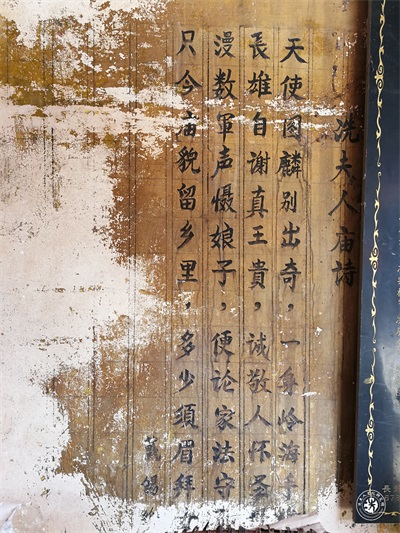 冼夫人庙詩
天使图麟别出奇，一身岭海手
長雄自谢真王貴，诚敬人怀圣
漫数軍声慑娘子，便论家法守
只今庙貌留乡里，多少須眉拜
戴锡